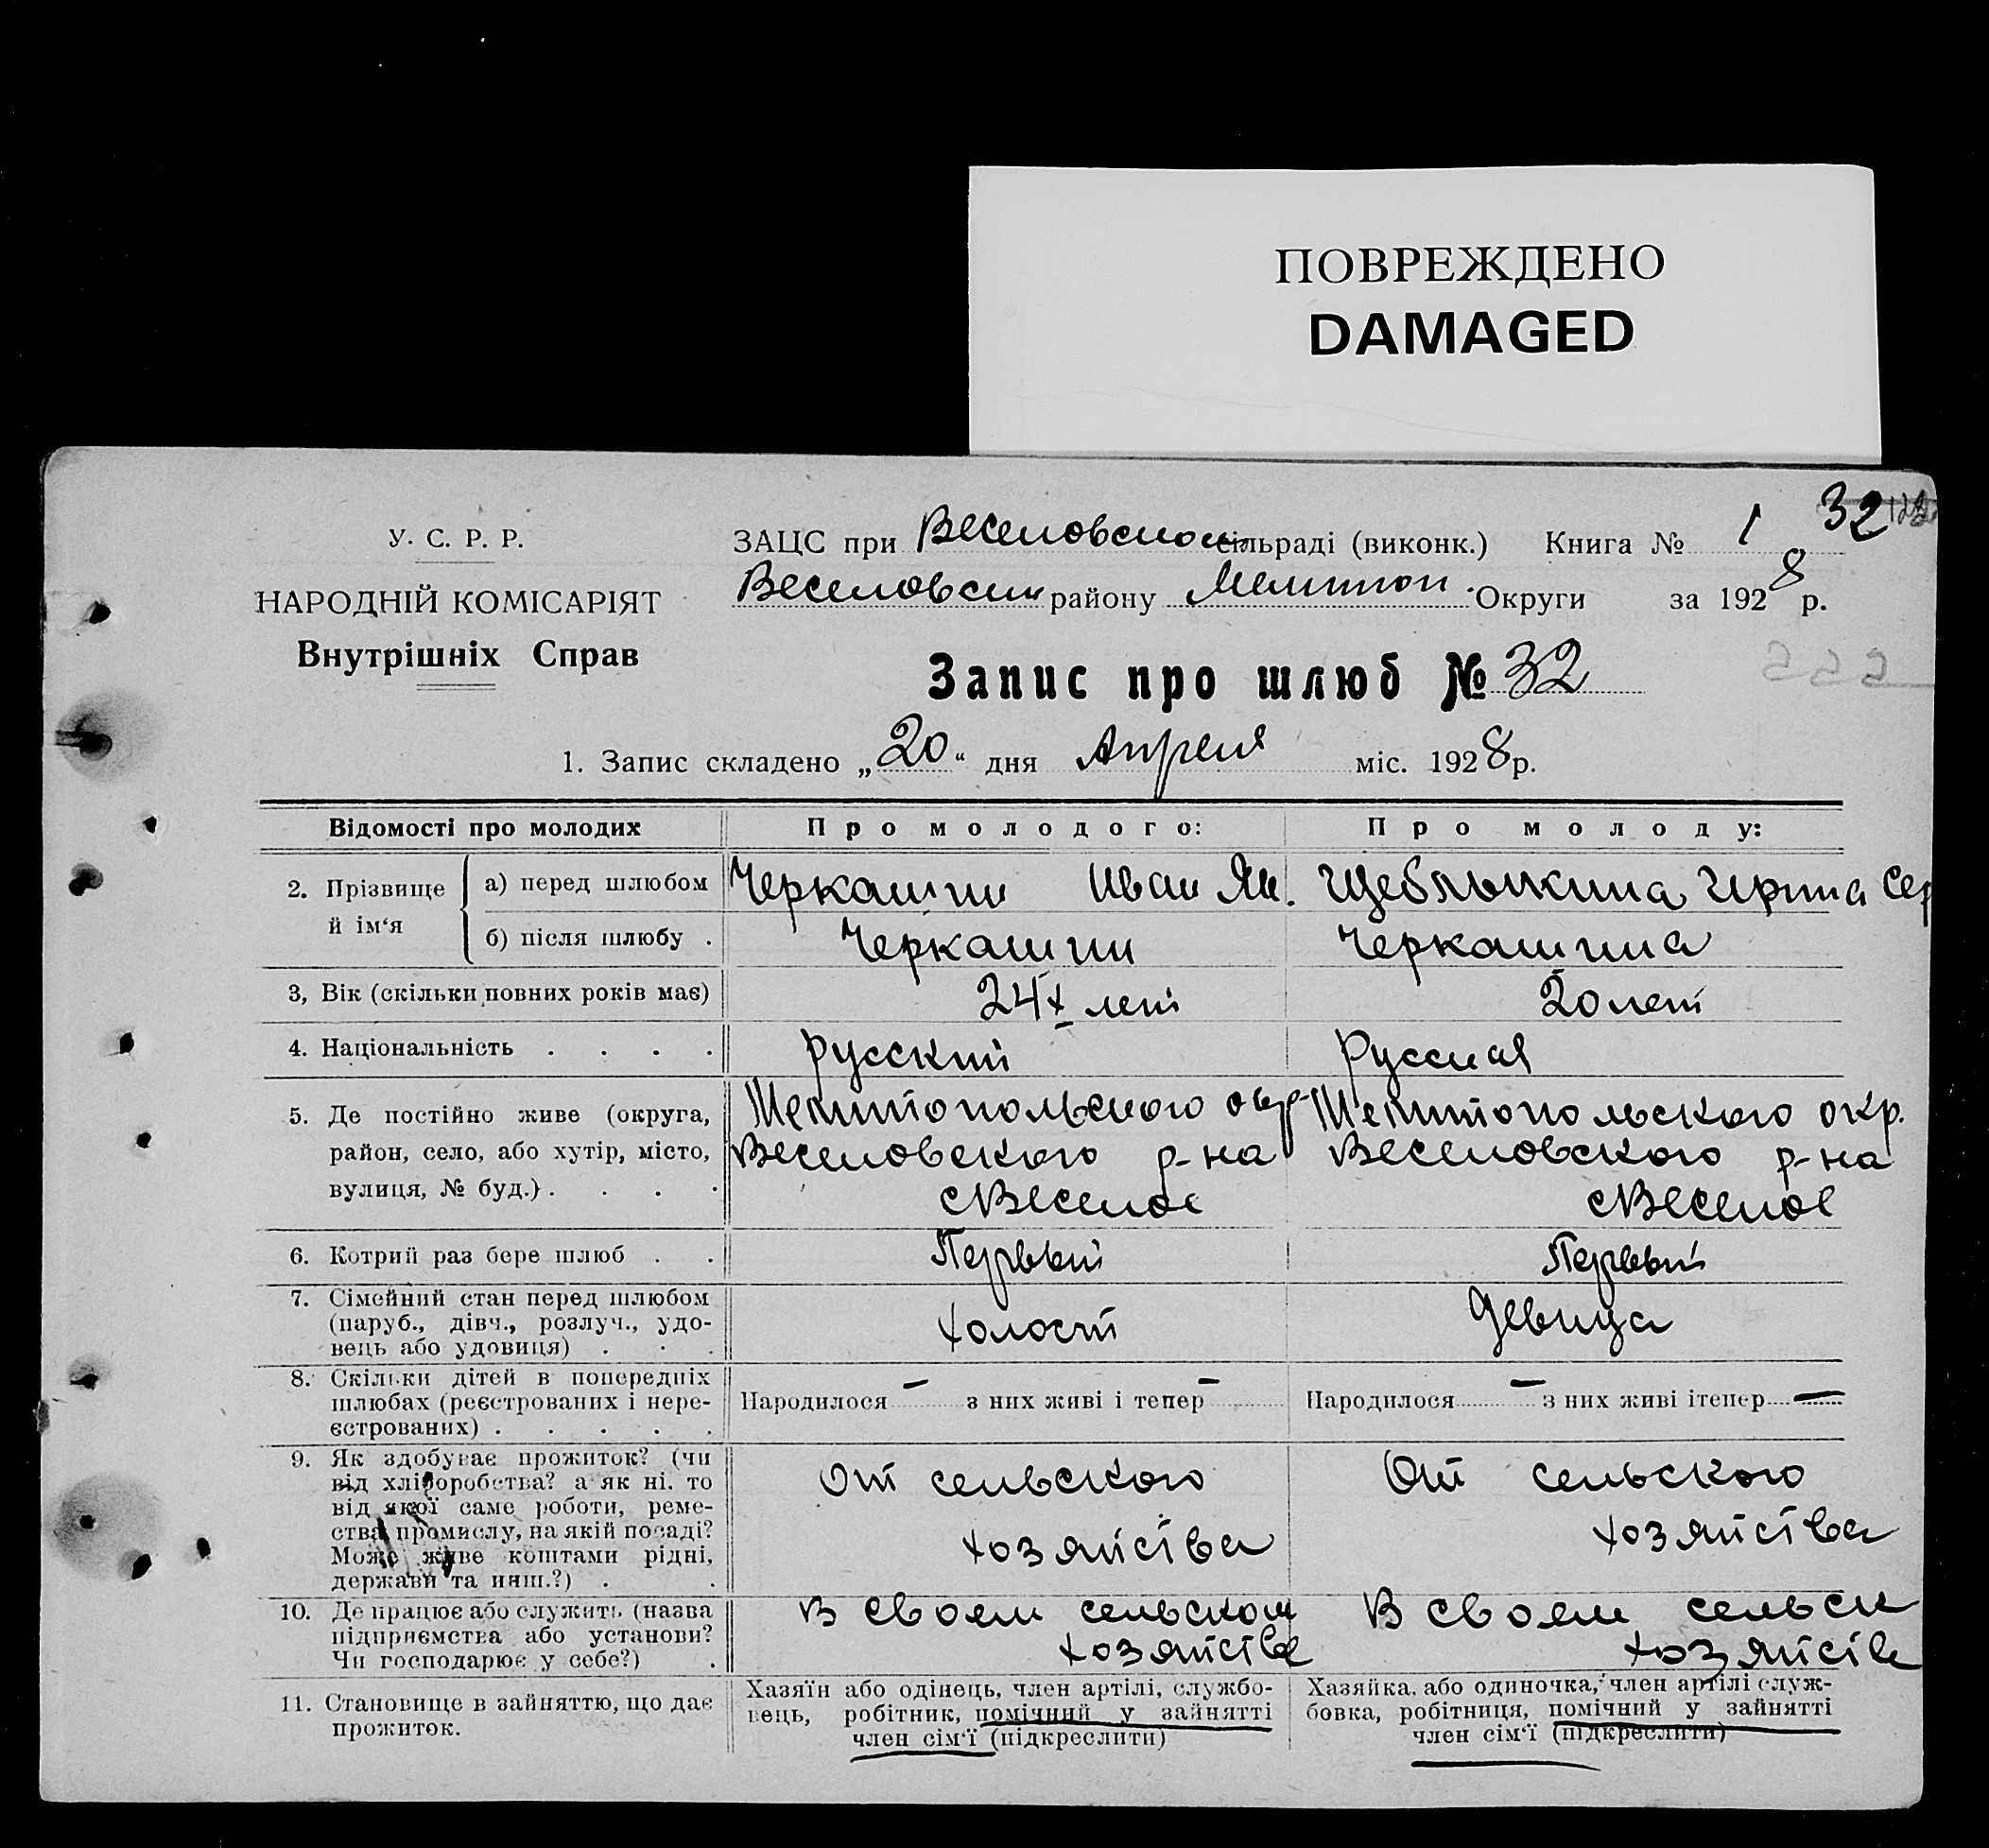 ПОВРЕЖДЕНО
DAMAGED
32
У. С. Р. Р.
НАРОДНІЙ КОМІСАРІЯТ
Внутрішніх Справ
ЗАЦС при Веселовском сільраді (виконк.) Книга № 1
Веселовским району Мелитоп. Округи за 1928 р.
Запис про шлюб № 32
1. Запис складено „20“ дня Апреля міс. 1928 р.
Відомості про молодих Про молодого: Про молоду:
2. Прізвище й ім‘я
а) перед шлюбом Черкашин Иван Як. Щеблыкина Сер
б) після шлюбу . Черкашин Черкашина
3, Вік (скільки повних років має) 24х лет 20 лет
4. Національність . . . . русский Русская
5. Де постійно живе (округа, Мелитопольского окр. Мелитопольского окр.
район, село, або хутір, місто, Веселовского р-на Веселовского р-на
вулиця, № буд.) . . . . с Веселое с Веселое
6. Котрий раз бере шлюб . . Первый Первый
7. Сімейний стан перед шлюбом
(паруб., дівч., розлуч., удо-
вець або удовиця) . . . холост Девица
8. Скільки дітей в попередніх
шлюбах (реєстрованих і нере- Народилося – з них живі і тепер – Народилося – з них живі ітепер –
єстрованих) . . . . .
9. Як здобуває прожиток? (чи
від хліборобства? а як ні. то От сельского От сельского
від якої саме роботи, реме-
ства промислу, на якій посаді?
Може живе коштами рідні, хозяйства хозяйства
держави та инш.?) . .
10. Де працює або служить (назва В своем сельском В своем сельск
підприємства або установи? хозяйстве хозяйстве
Чи господарює у себе?) .
11. Становище в зайняттю, що дає прожиток.
Хазяїн або одінець, член артілі, службо-
вець, робітник, помічний у зайнятті
член сім‘ї (підкреслити)
Хазяйка, або одиночка, член артілі служ-
бовка, робітниця, помічний у зайнятті
член сім‘ї (підкреслити)